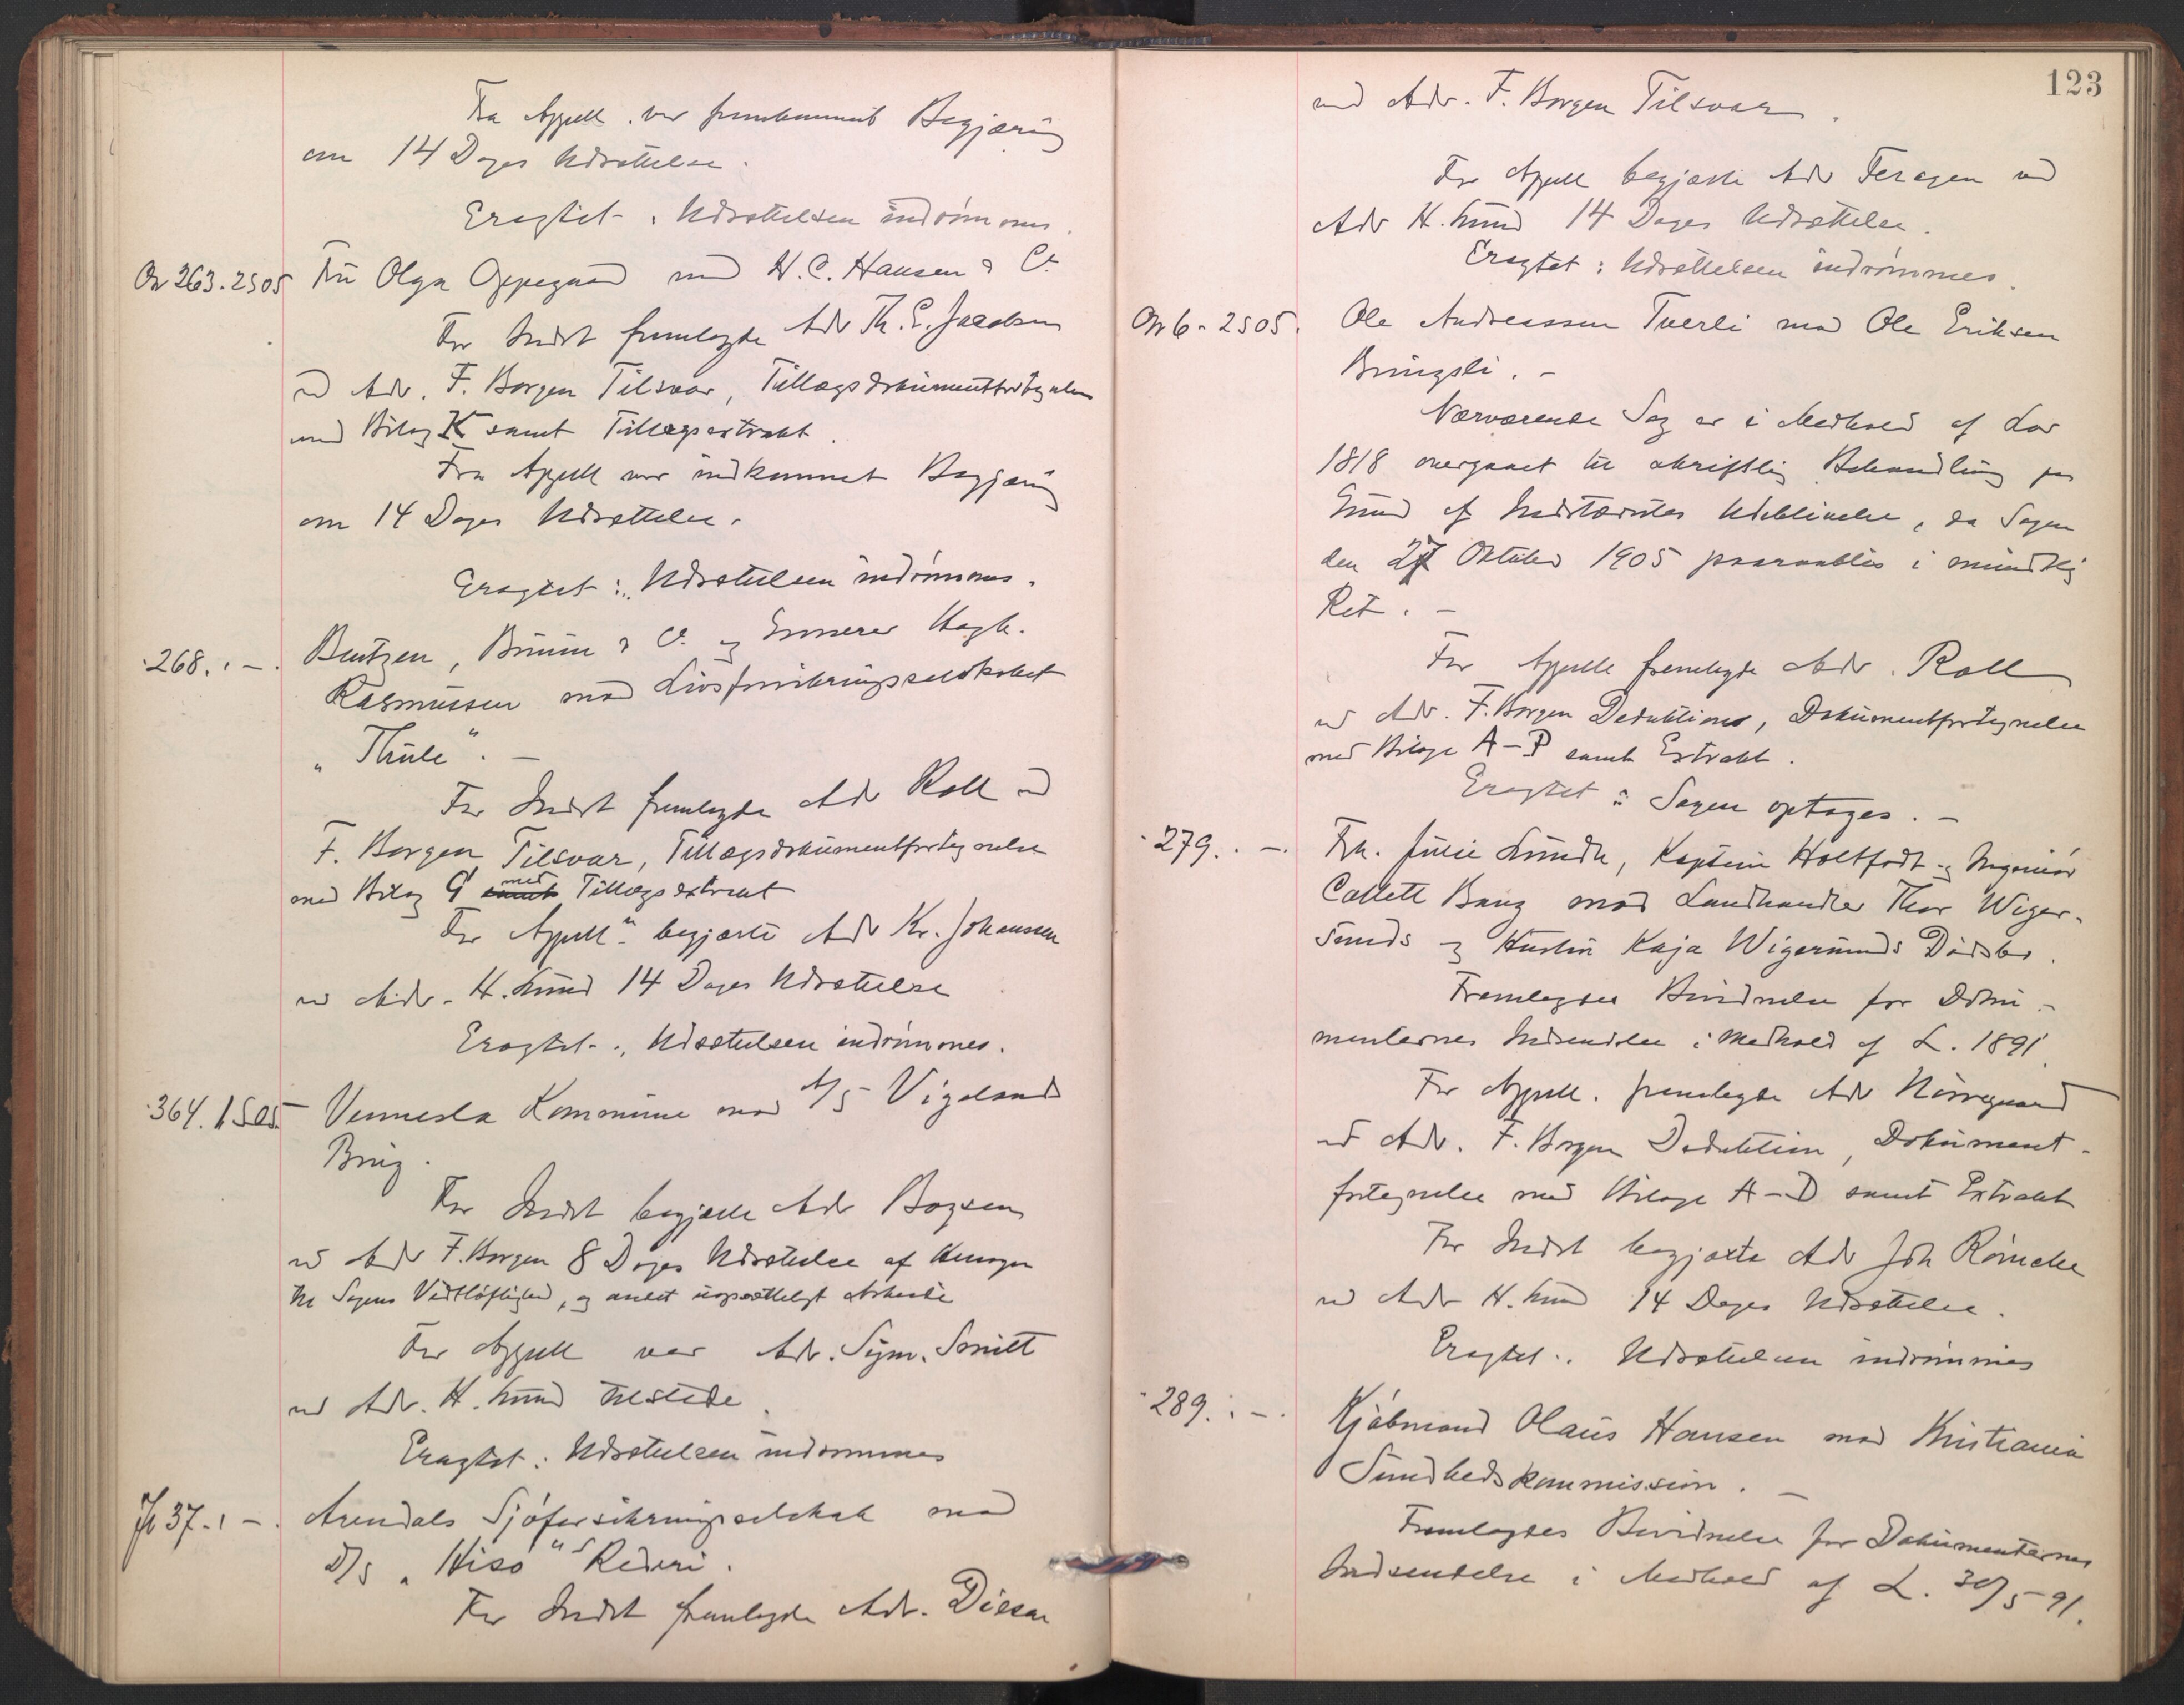 Fra Appell. var fremkommet Begjæring
om 14 Dages Udsættelse.
Eragtet: Udsættelsen indrömmes.
Or 263. 2 S 05 Fru Olga Oppegaard mod H. C. Hansen & Co.
For Indst fremlagde Adv Th. E. Jacobsen
ved Adv. F. Borgen Tilsvar, Tillægsdokumentfortegnelse
med Bilag K samt Tillægsextrakt.
Fra Appell var indkommet Begjæring
om 14 Dages Udsættelse.
Eragtet: Udsættelsen indrömmes.
268. : - . Bentzen, Bruun & Co. og Grosserer
Rasmussen mod Livsforsikringsselskabet
„Thule". -
For Indst fremlagde Adv Roll ved
F. Borgen Tilsvar, Tillægsdokumentfortegnelse
med Bilag Q samt med Tillægsextrakt
For Appell begjærte Adv Kr. Johanssen
ved Adv. H. Lund 14 Dages Udsættelse
Eragtet: Udsættelsen indrömmes.
364. 1 S 05 Vennesla Kommune mod A/S Vigeland
Brug.
For Indst begjærte Adv
ved Adv F. Borgen 8 Dages Udsættelse af Hensyn
til Sagens Vidtløftighed, og andet uopsætteligt Arbeide
For Appell var Adv. Sym. Smitt
ved Adv. H. Lund tilstede.
Eragtet: Udsættelsen indrommes
37. : - . Arendals Sjöforsikringsselskab mod
D/S „Hisö"s Rederi.
For Indst fremlagde Adv.
123
ved Adv. F. Borgen Tilsvar.
For Appell begjærte Adv Feragen ved
Adv H. Lund 14 Dages Udsættelse.
Eragtet: Udsættelsen indrömmes.
Or 6 - 2 S 05. Ole Andreassen Tverli mod Ole Eriksen
Bringsli. -
Nærværende Sag er i Medhold af Lov
1818 overgaaet til skriftlig Behandling paa
Grund af Indstævntes Udeblivelse, da Sagen
den 27 Oktober 1905 paaraabtes i mundtlig
Ret. -
For Appell fremlagde Adv. Roll
ved Adv. F. Borgen Deduktion, Dokumentfortegnelse
med Bilage A-P samt Extrakt.
Eragtet: Sagen optages. -
279. : - . Frk. Julie Lundh, Kaptein Holtfodt og Ingeniör
Collett Bang mod Landhandler Thor Wiger-
sunds og Hustru Kaja Wigersunds Dödsbo.
Fremlagdes Bevidnelse for Doku-
menternes Indsendelse i Medhold af L. 1891.
For Appell. fremlagde Adv Nörregaard
ved Adv. F. Borgen Deduktion, Dokument-
fortegnelse med Bilage A-D samt Extrakt
For Indst begjærte Adv Joh Römcke
ved Adv H. Lund 14 Dages Udsættelse.
Eragtet: Udsættelsen indrömmes
289. : - . Kjöbmand Olaus Hansen mod Kristiania
Sundhedskommission. -
Fremlagdes Bevidnelse for Dokumenternes
Indsendelse i Medhold af L. 30/5 91.